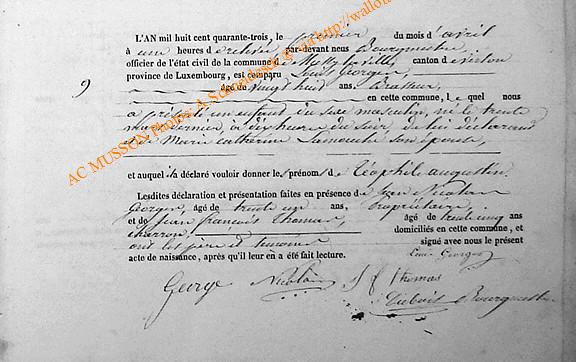 L'AN mil huit cent quarante-trois, le premier du mois d'avril
à une heures de relevée par-devant nous Bourgmestre
officier de l'état civil de la commune de canton de Virton
province de Luxembourg, est comparu Louis Georges
9
âgé de vingt huit ans, Brasseur
en cette commune, lequel nous
a présenté un enfant du sexe masculin, né le trente
mars dernier, à dix heures du soir, de lui déclarant
et de Marie Catherine son épouse
et auquel il a déclaré vouloir donner les prénoms de Téophile augustin.
Lesdites déclaration et présentation faites en présence de Jean Nicolas
Georges, âgé de trente un ans, Propriétaire
et de Jean françois Thomas, âgé de trente cinq ans
charron domiciliés en cette commune, et
ont les père et témoins signé avec nous le présent
acte de naissance, après qu'il leur en a été fait lecture.
Louis Georges
George Nicolas J f thomas
Dubois Bourgmestre
AC MUSSON Photos A. Schneidesch @ http://wallo